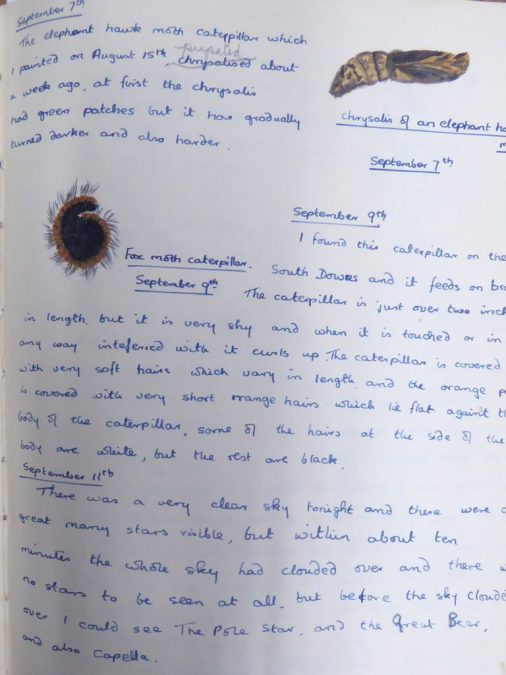 September 7th
The elephant hawk moth caterpillar which
pupated
I painted on August 15th, chrysalised about
a week ago, at first the chrysalis
had green patches but it has gradually
turned darker and also harder.
chrysalis of an elephant ha
m
September 7th
September 9th
I found this caterpillar on the
Fox moth caterpillar.
South Downs and it feeds on br
September 9th
The caterpillar is just over two inc
in length, but it is very shy and when it is touched or in
any way intefered with it curls up. The caterpillar is covered
with very soft hairs which vary in length and the orange p
is covered with very short orange hairs which lie flat againt th
body of the caterpillar, some of the hairs at the side of the
body are white, but the rest are black.
September 11th
There was a very clear sky tonight and there were a
great many stars visible, but within about ten
minutes the whole sky had clouded over and there w
no stars to be seen at all, but before the sky clouded
over I could see The Pole Star, and the Great Bear,
and also Capella.